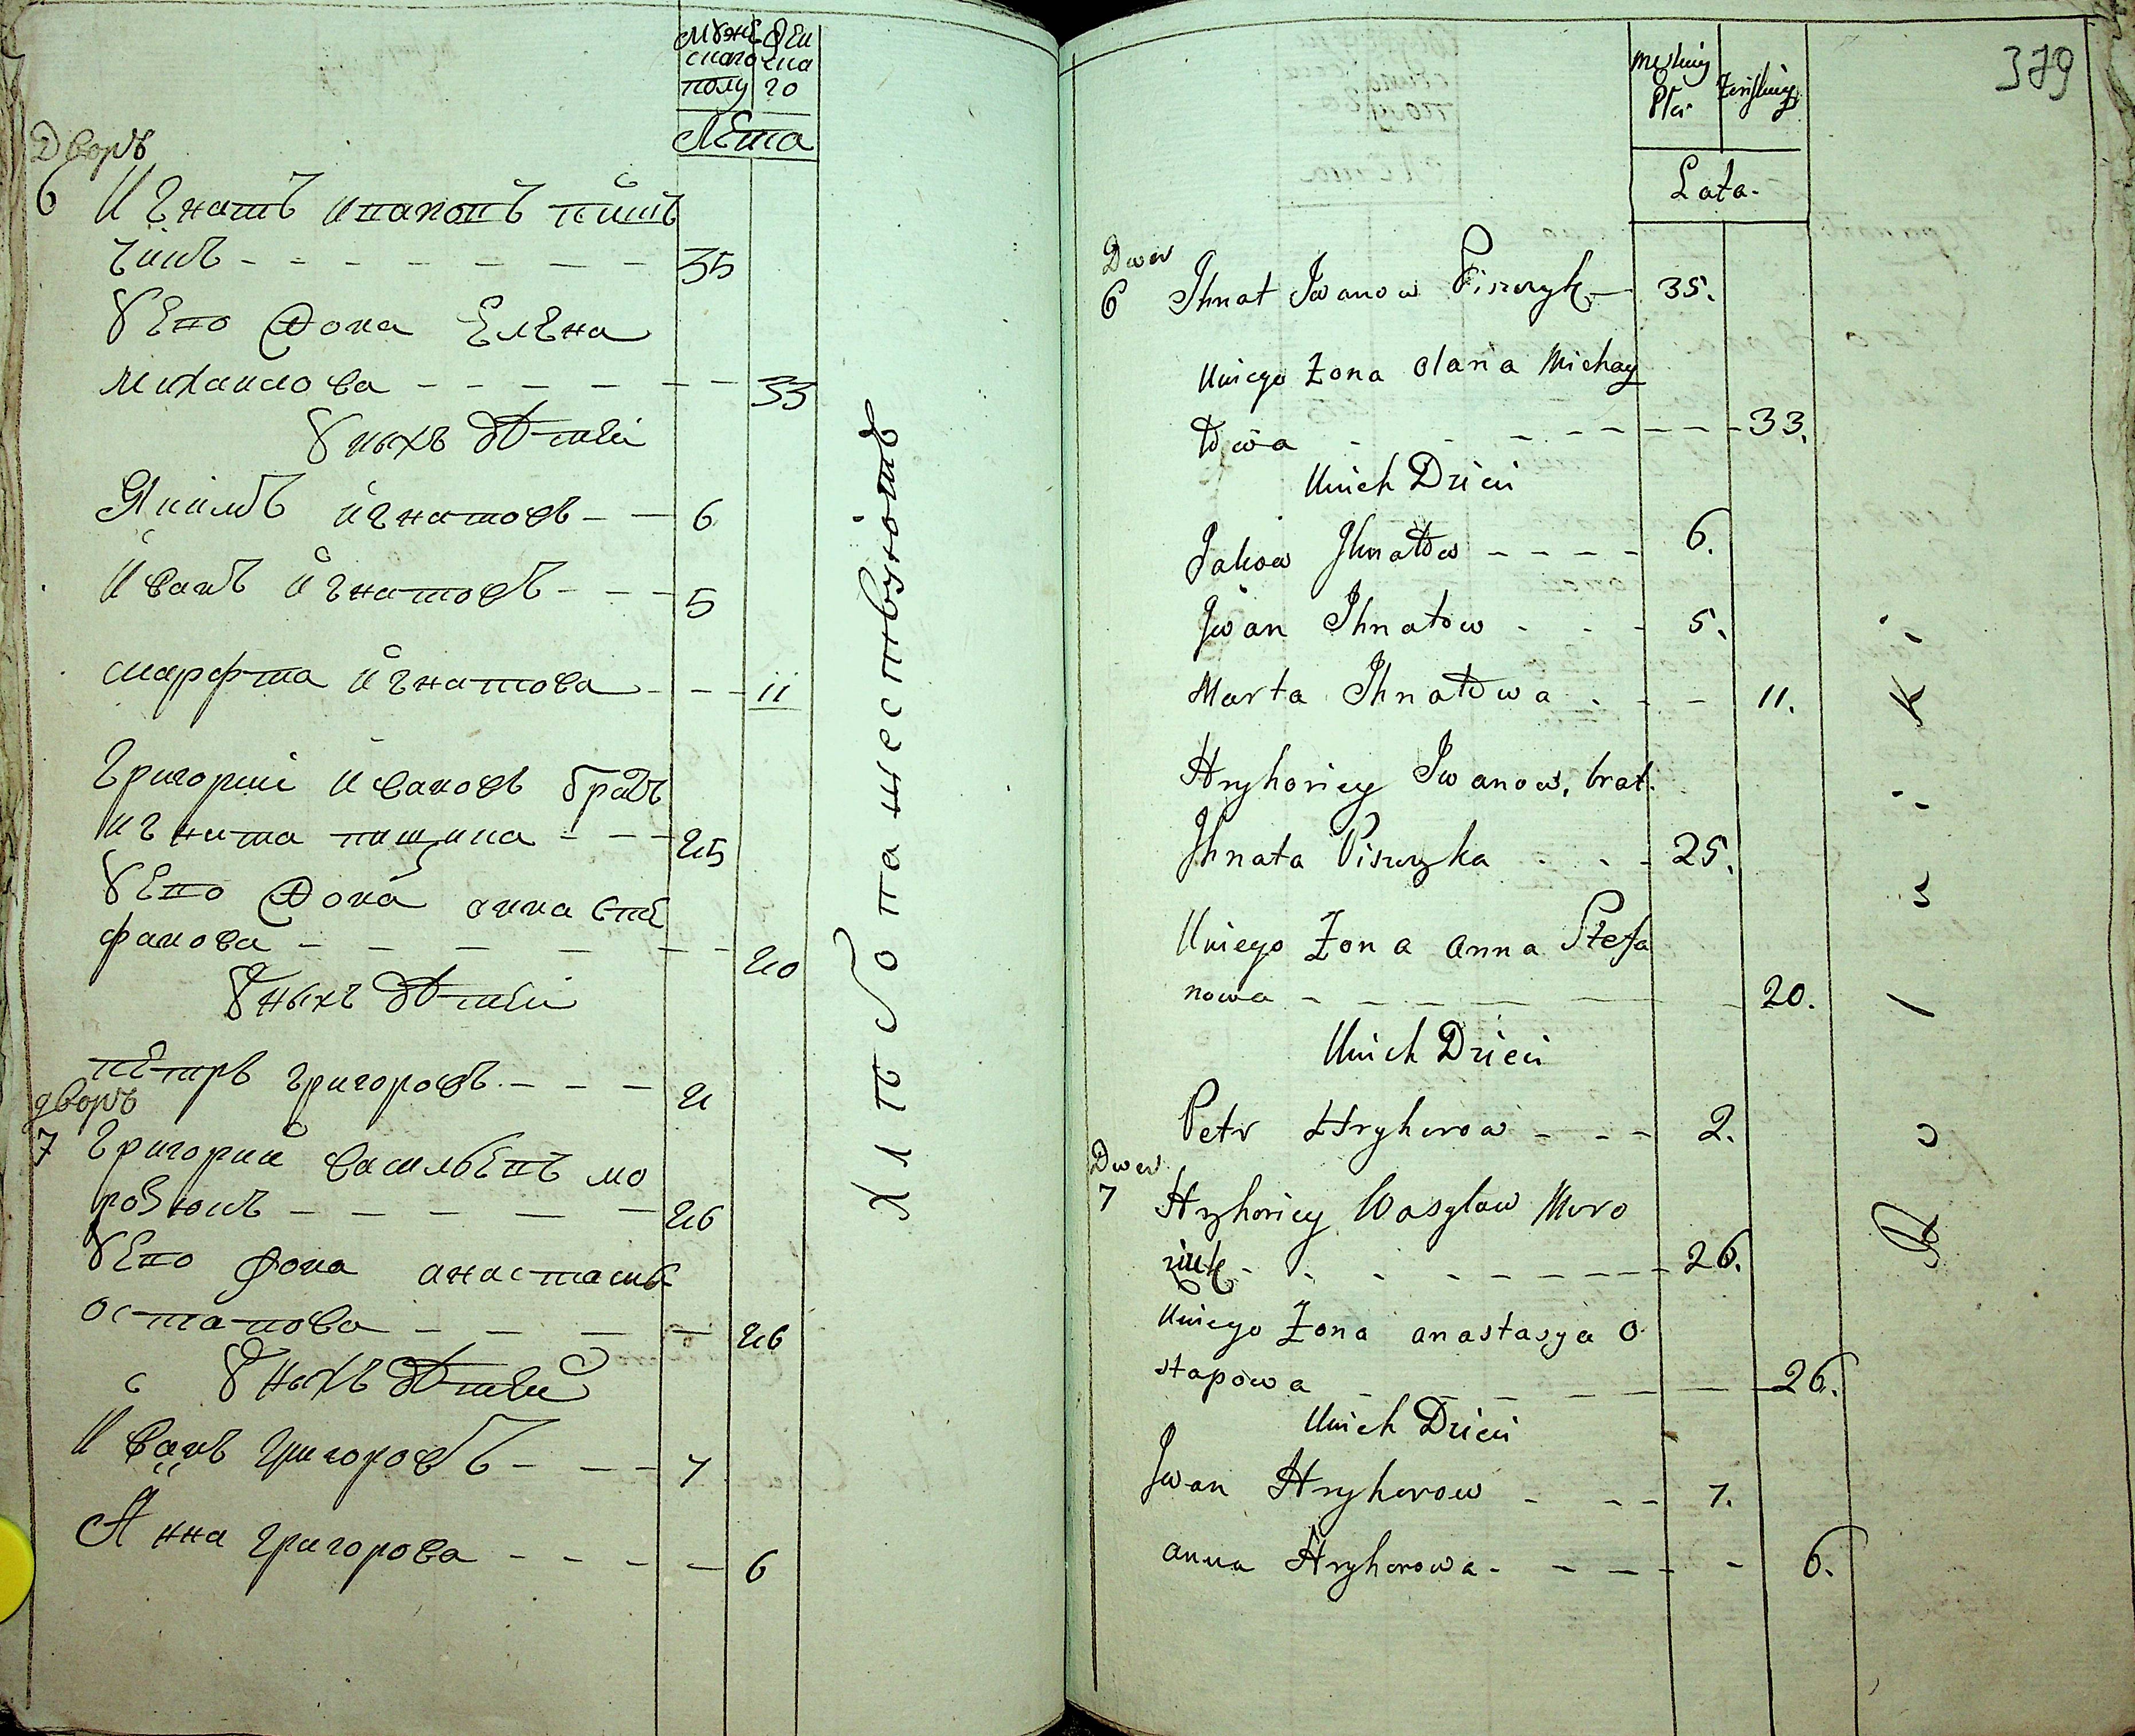 мужескаго полу
женскаго
Лѣта
Дворъ
6 Игнатъ Ивановъ пищ
чикъ - - - - - - - 35
У Его жона Елена
михаилова - - - - - - 33
У ныхъ дѣтей
Якимъ игнатовъ - - 6
Иванъ Игнатовъ - - - 5
марфта игнатова - - - 11
григорий ивановъ братъ
игната пищика - - - 25
У Его жона анна Сте
фанова - - - - - - 20
У ныхъ дѣтей
пЕтръ григоровъ - - - 2
дворъ
7 Григорий васильЕвъ мо
розюкъ - - - - - 26
У Его жона анастасия
остапова - - - - 26
У ныхъ дѣтей
Иванъ григоровъ - - - 7
Анна григорова - - - - - 6
Хлѣбопашествуютъ
379
Męskiey
Płci
Zeńskiey
Lata.
Dwor
6 Ihnat Iwanow Piszczyk - 35.
Uniego Żona Olana Michay
łowa - - - - - - - 33.
Unich Dzieci
Jakow Ihnatow - - - - 6.
Iwan Ihnatow - - - 5.
Marta Ihnatowa - - - 11.
Hryhoriey Iwanow, brat
Ihnata Piszczyka - - - 25.
Uniego Żona anna Stefa
nowa - - - - - - 20.
Unich Dzieci
Petr Hryhorow - - - 2.
Dwor
7 Hryhoriey Wasylow Moro
ziuk - - - - - - - - 26.
Uniego Żona anastasya O
stapowa - - - - - - 26.
Unich Dzieci
Iwan Hryhorow - - - 7.
anna Hryhorowa - - - - - 6.
Rolniki